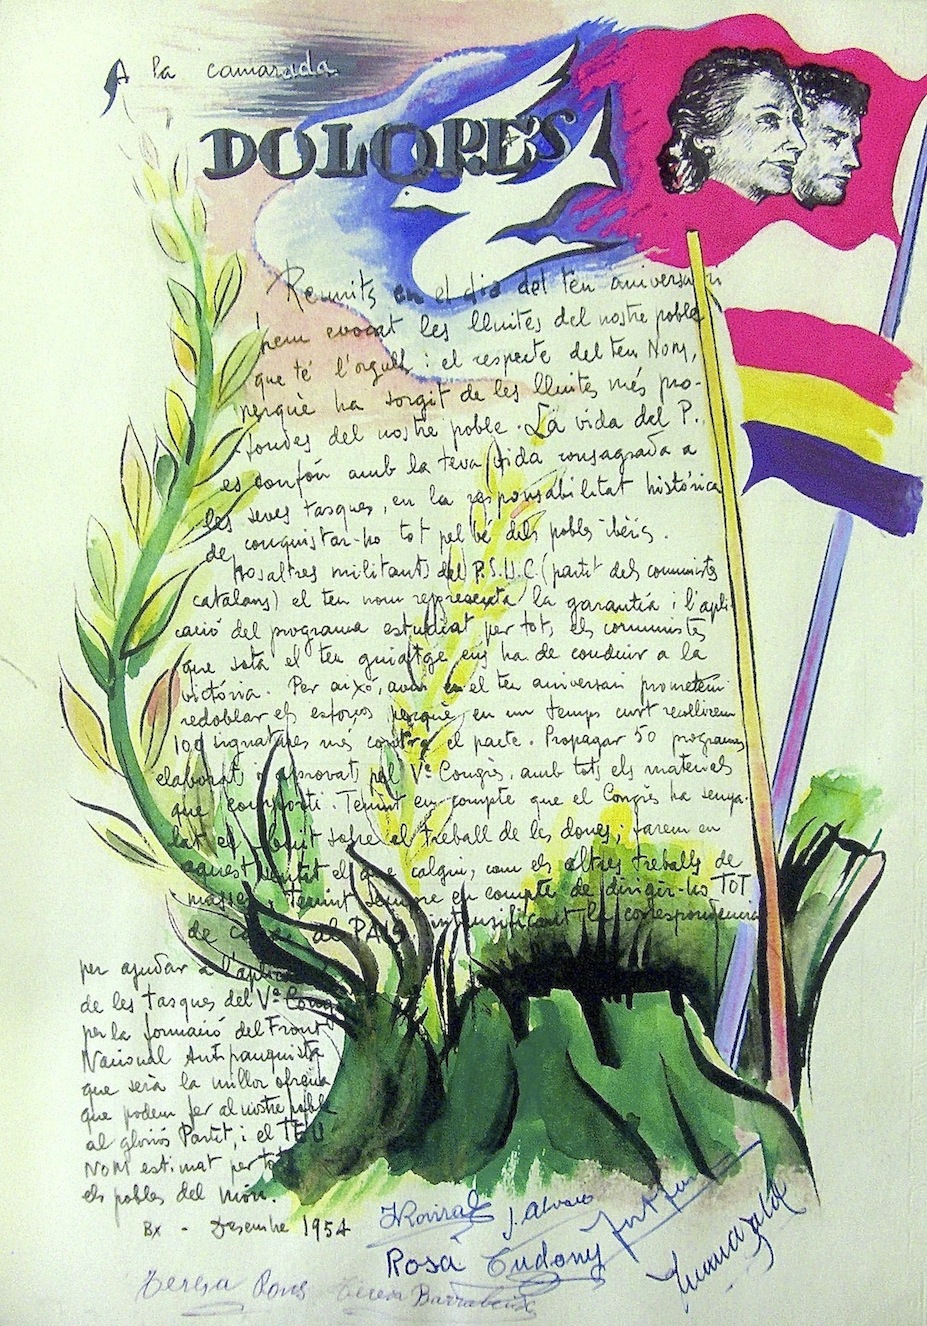 A la camarada
DOLORES
Reunits en el dia del teu aniversari
hem evocat les lluites del nostre poble
que té l'orgull i el respecte del teu Nom,
perquè ha sorgit de les lluites més pro-
fondes del nostre poble. La vida del P.
es confón amb la teva vida consagrada a
les seves tasques, en la responsabilitat històrica
de conquistar-ho tot pel bé dels pobles ibèrics.
Nosaltres militants del P.S.U.C. (partit dels comunistes
catalans) el teu nom representa la garantia i l'apli-
cació del programa estudiat per tots els comunistes
que sota el teu guiatge ens ha de conduir a la
victòria. Per això, avui en el teu aniversari prometem
redoblar els esforços perquè en un temps curt recollirem
100 signatures més contra el pacte. Propagar 50 programes
elaborats i aprovats pel Vè Congrès, amb tots els materials
que comporti. Tenint en compte que el Congrès ha senya-
lat el sobre el treball de les dones, farem en
aquest sentit el que calgui, com els altres treballs de
masses, tenint sempre en compte de dirigir-ho TOT
de cara al PAIS, intensificant la correspondencia
per ajudar a
de les tasques del Vè
per la formació del Front
Nacional Antifranquista
que serà la millor ofrena
que podem fer al nostre poble
al gloriós Partit, i el TEU
NOM estimat per tots
els pobles del món.
Bx - Desembre 1954
J. Alvaro
Rosa Cudony
Teresa Pons Teresa